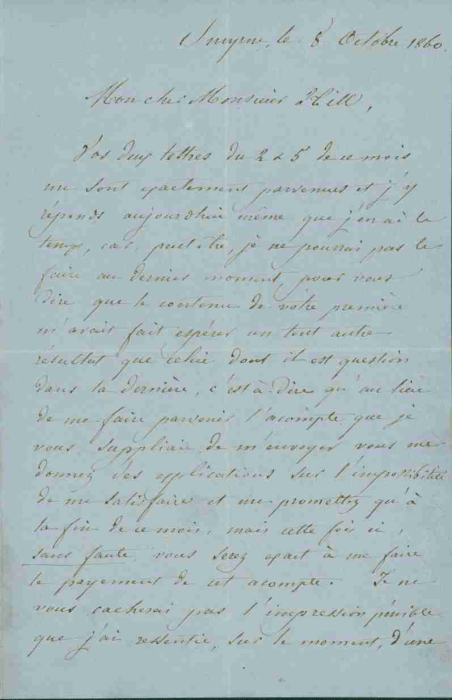 Smyrne, le 8 Octobre 1860.
Mon cher Monsieur Hill,
Vos deux lettres du 2 & 5 de ce mois
me sont exactement parvenues et j'y
réponds aujourd'hui même que j'en ai le
temps, car, peut être, je ne pourrai pas le
faire au dernier moment, pour vous
dire que le contenu de votre première
m'avait fait espérer un tout autre
résultat que celui dont il est question
dans la dernière, c'est à dire qu'au lieu
de me faire parvenir l'acompte que je
vous suppliai de m'envoyer vous me
donnez des explications sur l'impossibilité
de me satisfaire et me promettez qu'à
la fin de ce mois, mais cette fois ci,
sans faute, vous serez exact à me faire
le payement de cet acompte. Je ne
vous cacherai pas l'impression pénible
que j'ai ressentie, sur le moment, d'une